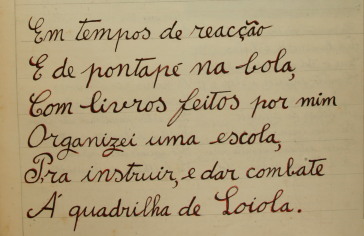 Em tempos de reacção
E de pontapé na bola,
Com livros feitos por mim
Organizei uma escola,
Pra instruir, e dar combate
Á quadrilha de Loiola.